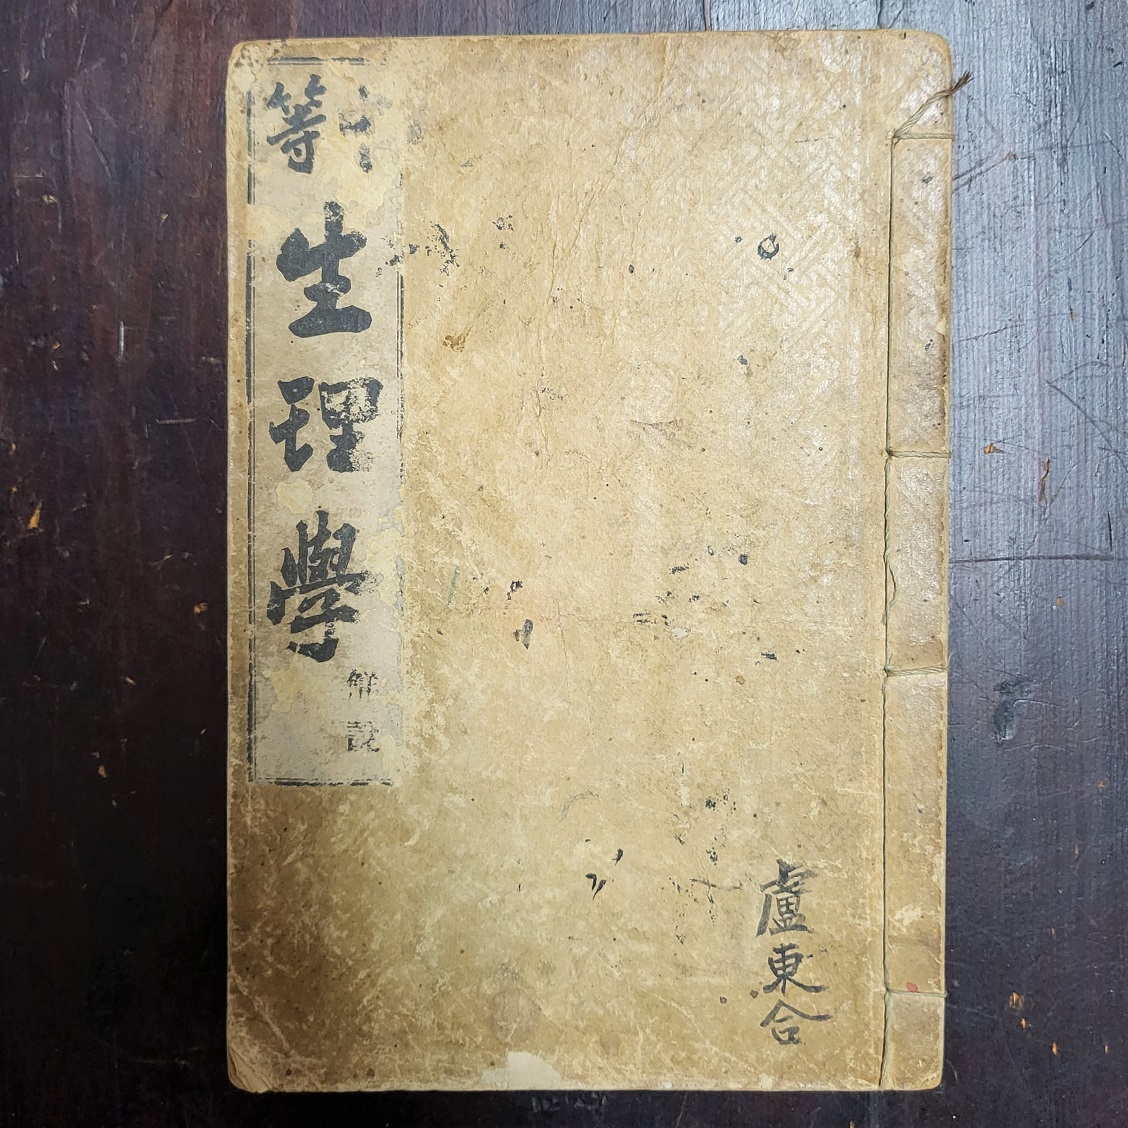 中等
生理學
解說
盧東合